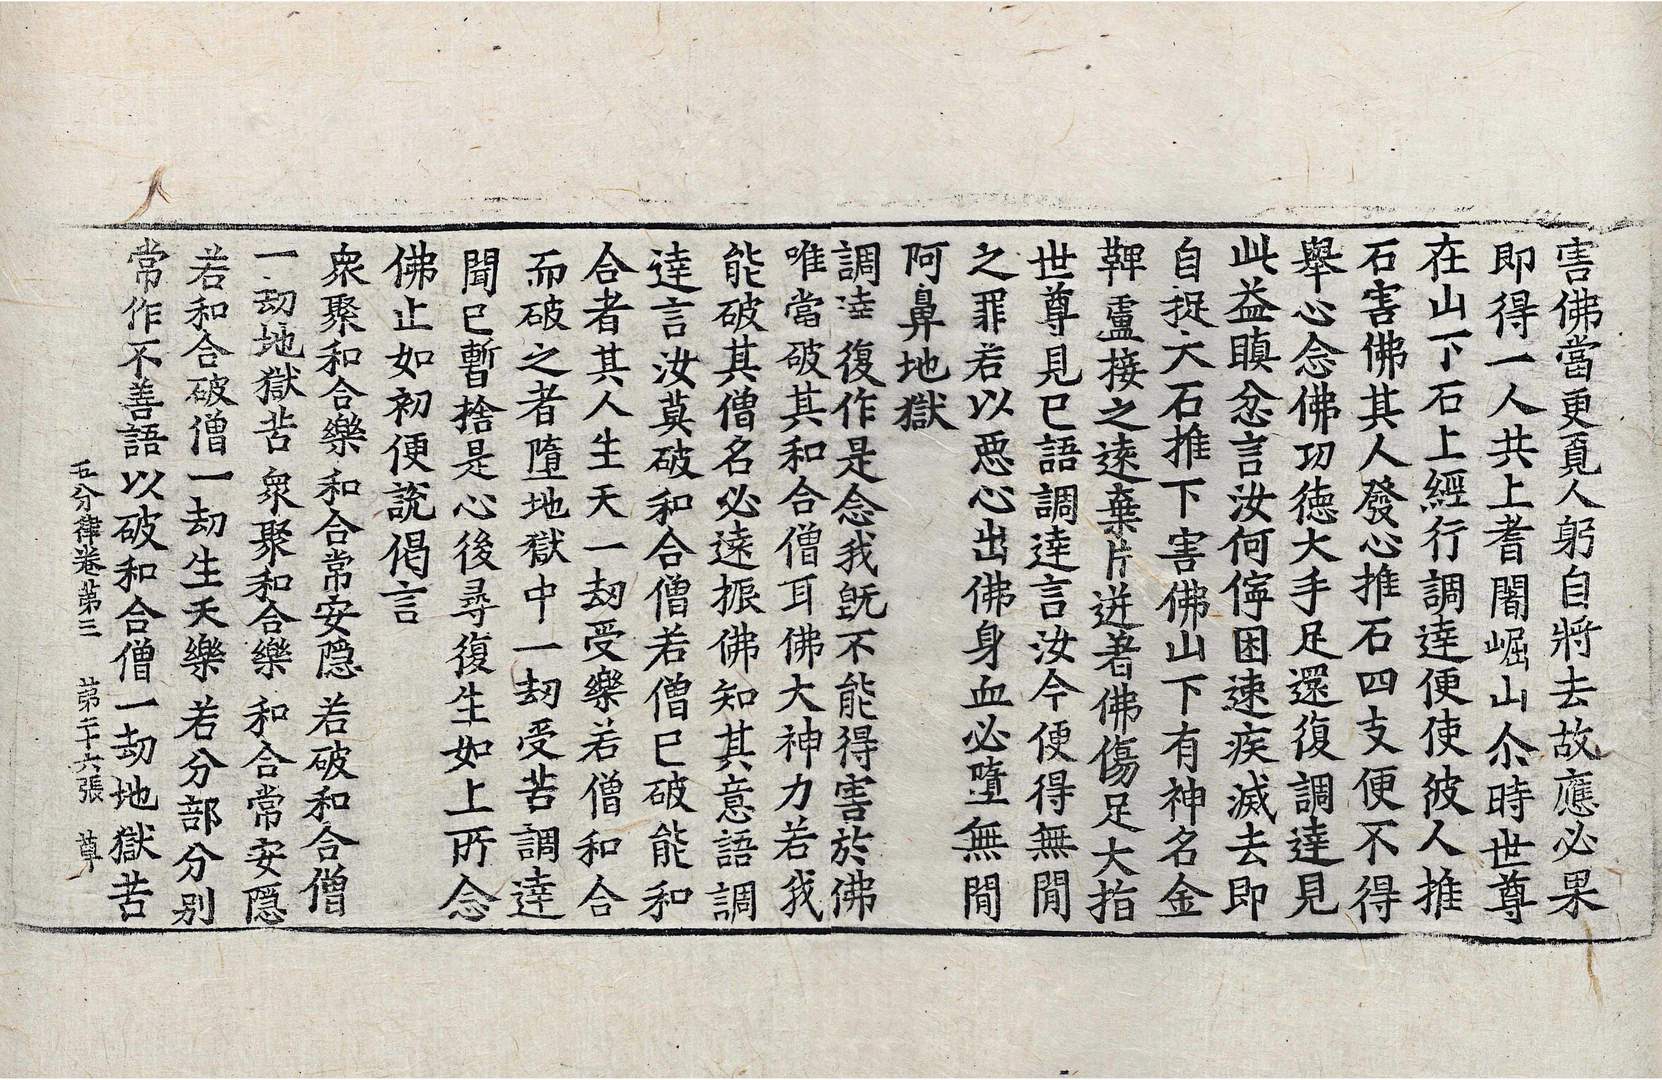 害佛當更覓人躬自將去故應必果
即得一人共上耆闍崛山尒時世尊
在山下石上經行調逹便使彼人推
石害佛其人發心推石四支便不得
舉心念佛功德大手足還復調逹見
此益瞋忿言汝何儜困速疾滅去即
自捉大石推下害佛山下有神名金
鞞盧接之遠棄片迸著佛傷足大指
世尊見已語調逹言汝今便得無間
之罪若以惡心出佛身血必墮無間
阿鼻地獄
調逹復作是念我旣不能得害於佛
唯當破其和合僧耳佛大神力若我
能破其僧名必遠振佛知其意語調
逹言汝莫破和合僧若僧已破能和
合者其人生天一劫受樂若僧和合
而破之者墮地獄中一劫受苦調逹
聞已暫捨是心後尋復生如上所念
佛止如初便說偈言
衆聚和合樂 和合常安隱 若破和合僧
一劫地獄苦 衆聚和合樂 和合常安隱
若和合破僧 一劫生天樂 若分部分別
常作不善語 以破和合僧 一劫地獄苦
五分律卷第三 第二十六張 草